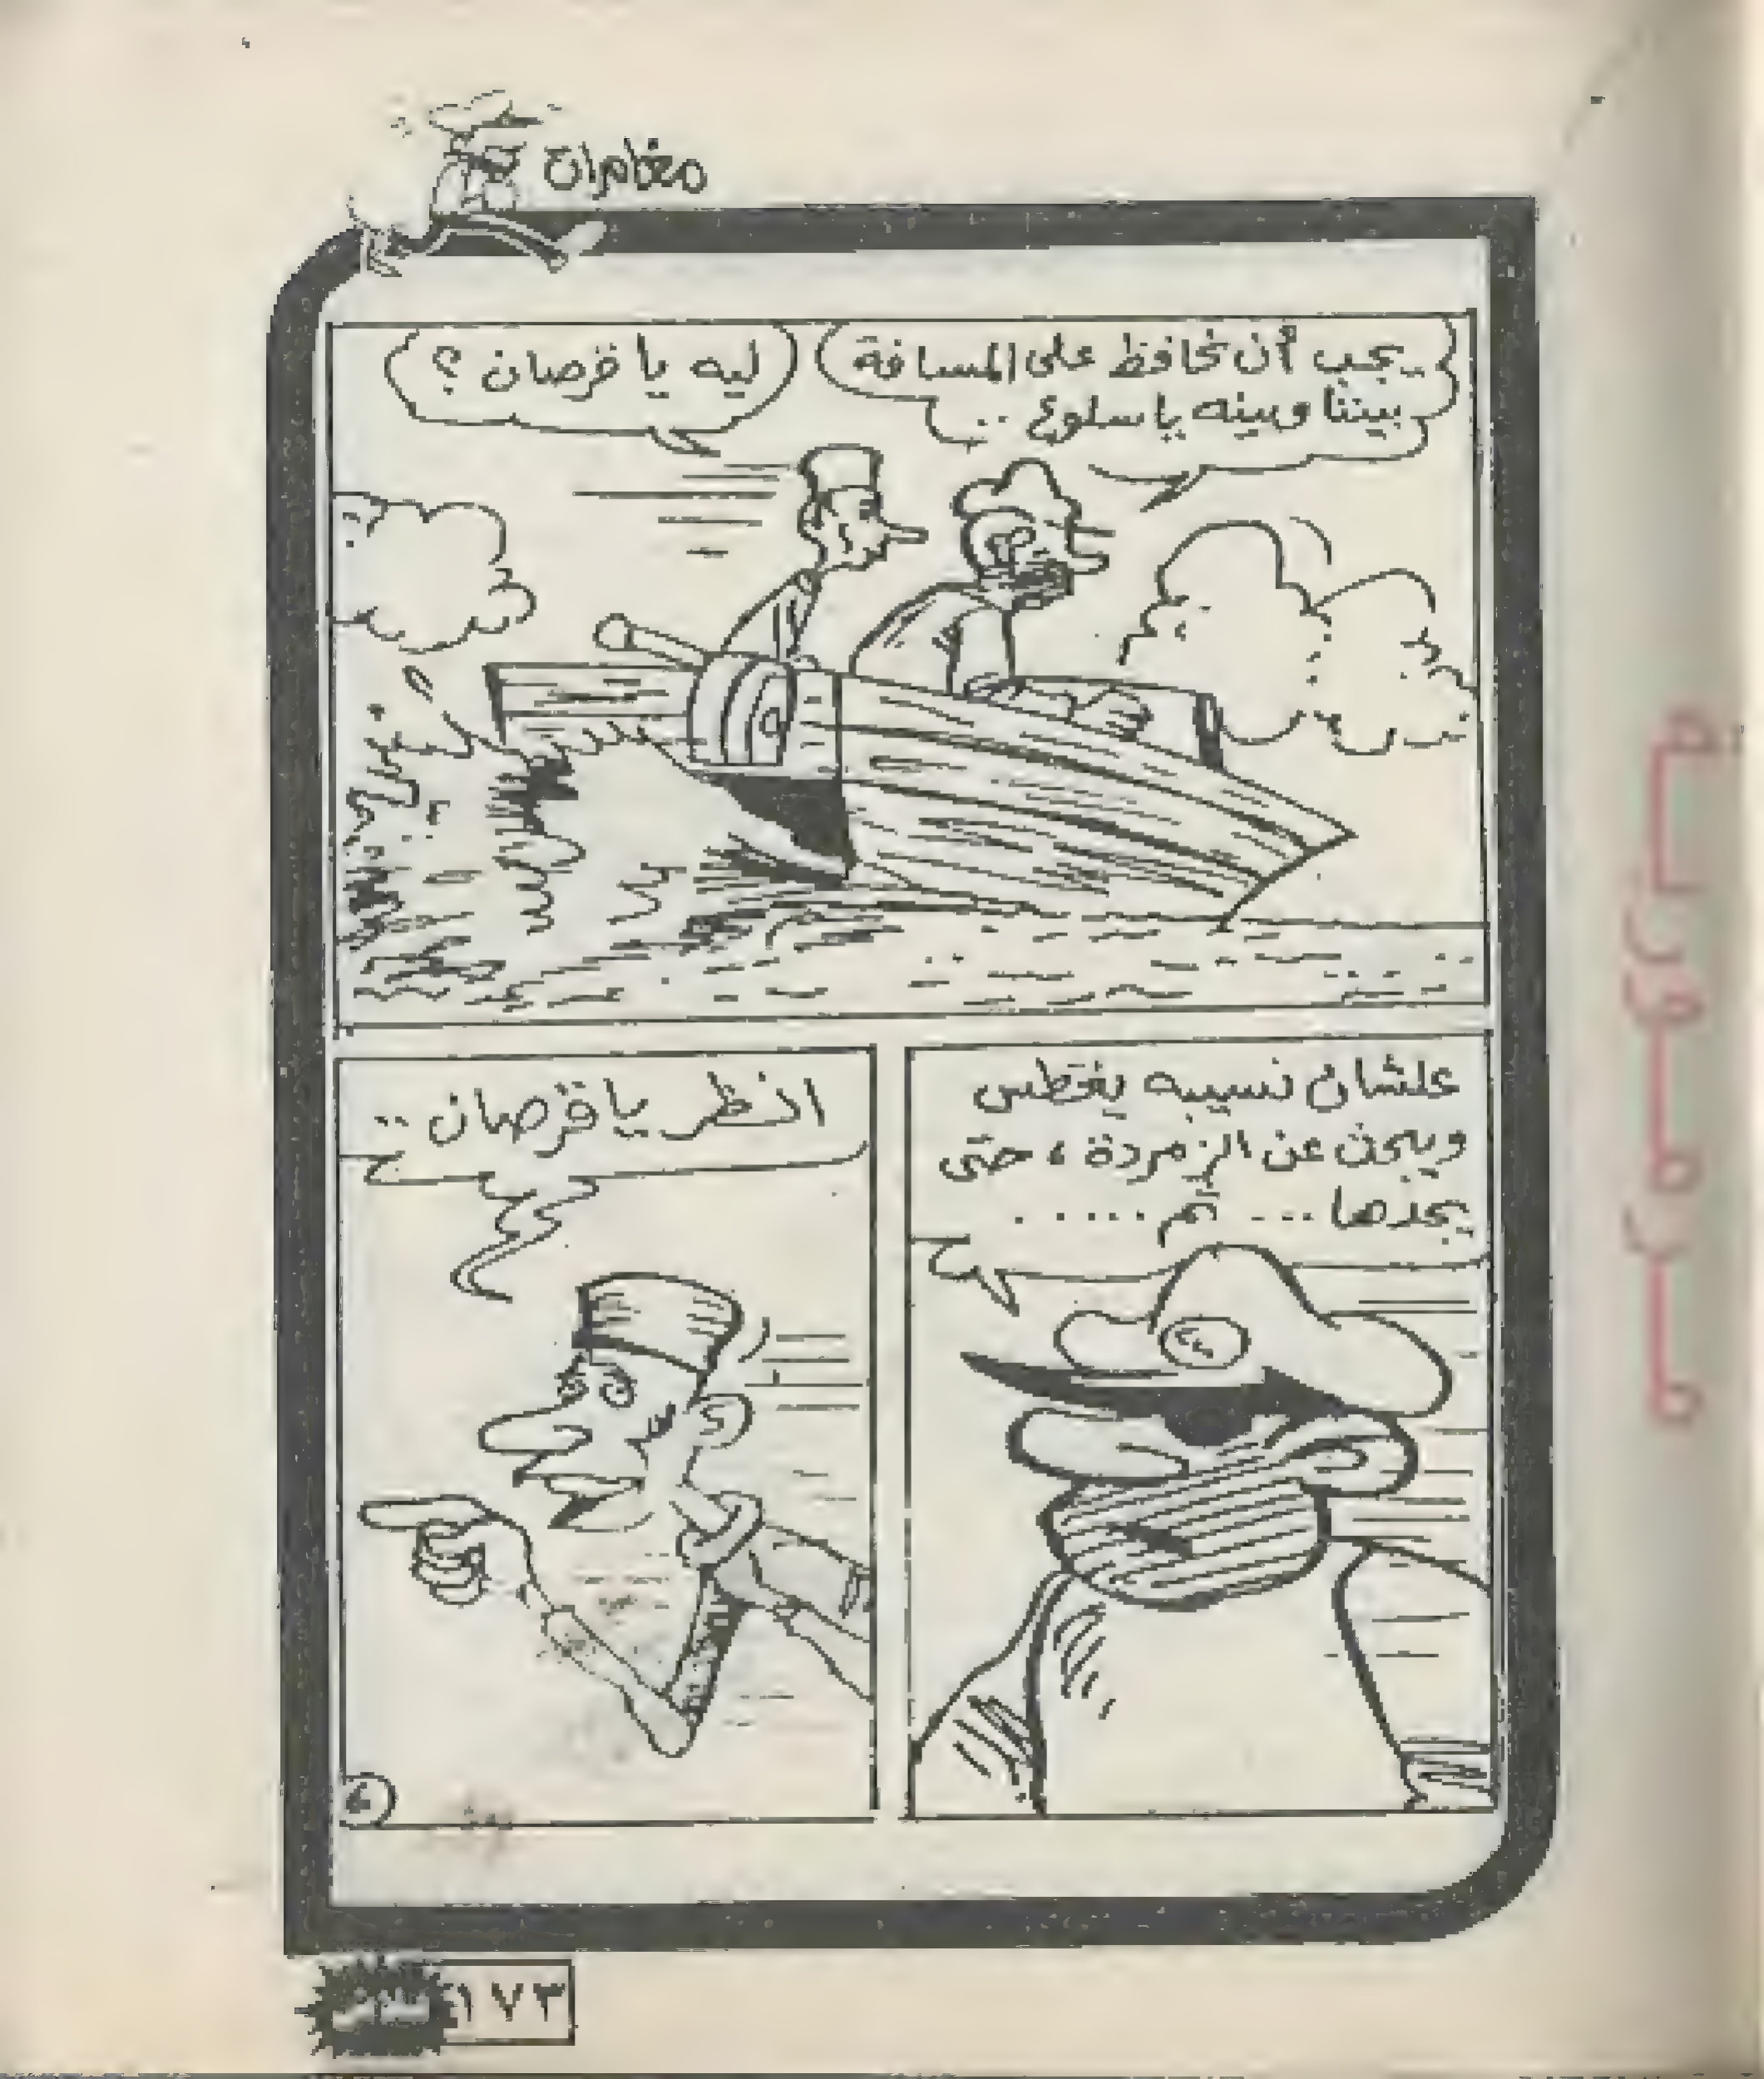 مغامرات
يجب أن نحافظ على المسافة
بيننا وبينه يا سلوع ..
ليه يا قرصان ؟
علشان نسيبه يغطس
ويبحث عن الزمردة ، حتى
يجدها ... ثم .....
انظر يا قرصان ..
٦
١٧٣